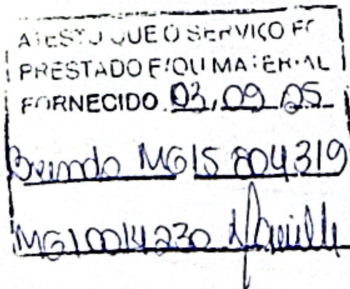 ATESTO QUE O SERVIÇO FO
PRESTADO E/OU MATERIAL
FORNECIDO 03,09,25
MG15 804319
MG10014230